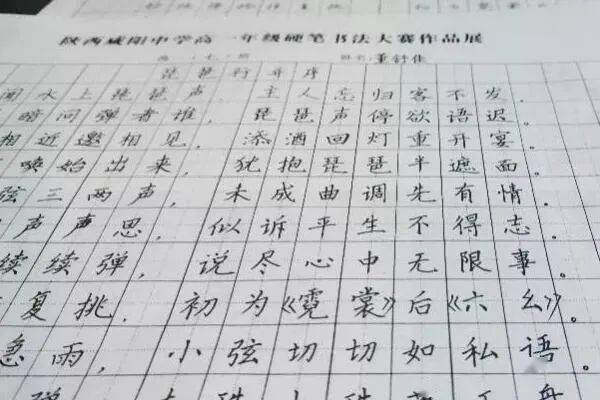 陕西咸阳中学高一年级硬笔书法大赛作品展
琵琶行并序
闻水上琵琶声，主人忘归客不发。
暗问弹者谁，琵琶声停欲语迟。
相近邀相见，添酒回灯重开宴。
唤始出来，犹抱琵琶半遮面。
弦三两声，未成曲调先有情。
声声思，似诉平生不得志。
续续弹，说尽心中无限事。
复挑，初为《霓裳》后《六幺》。
急雨，小弦切切如私语。